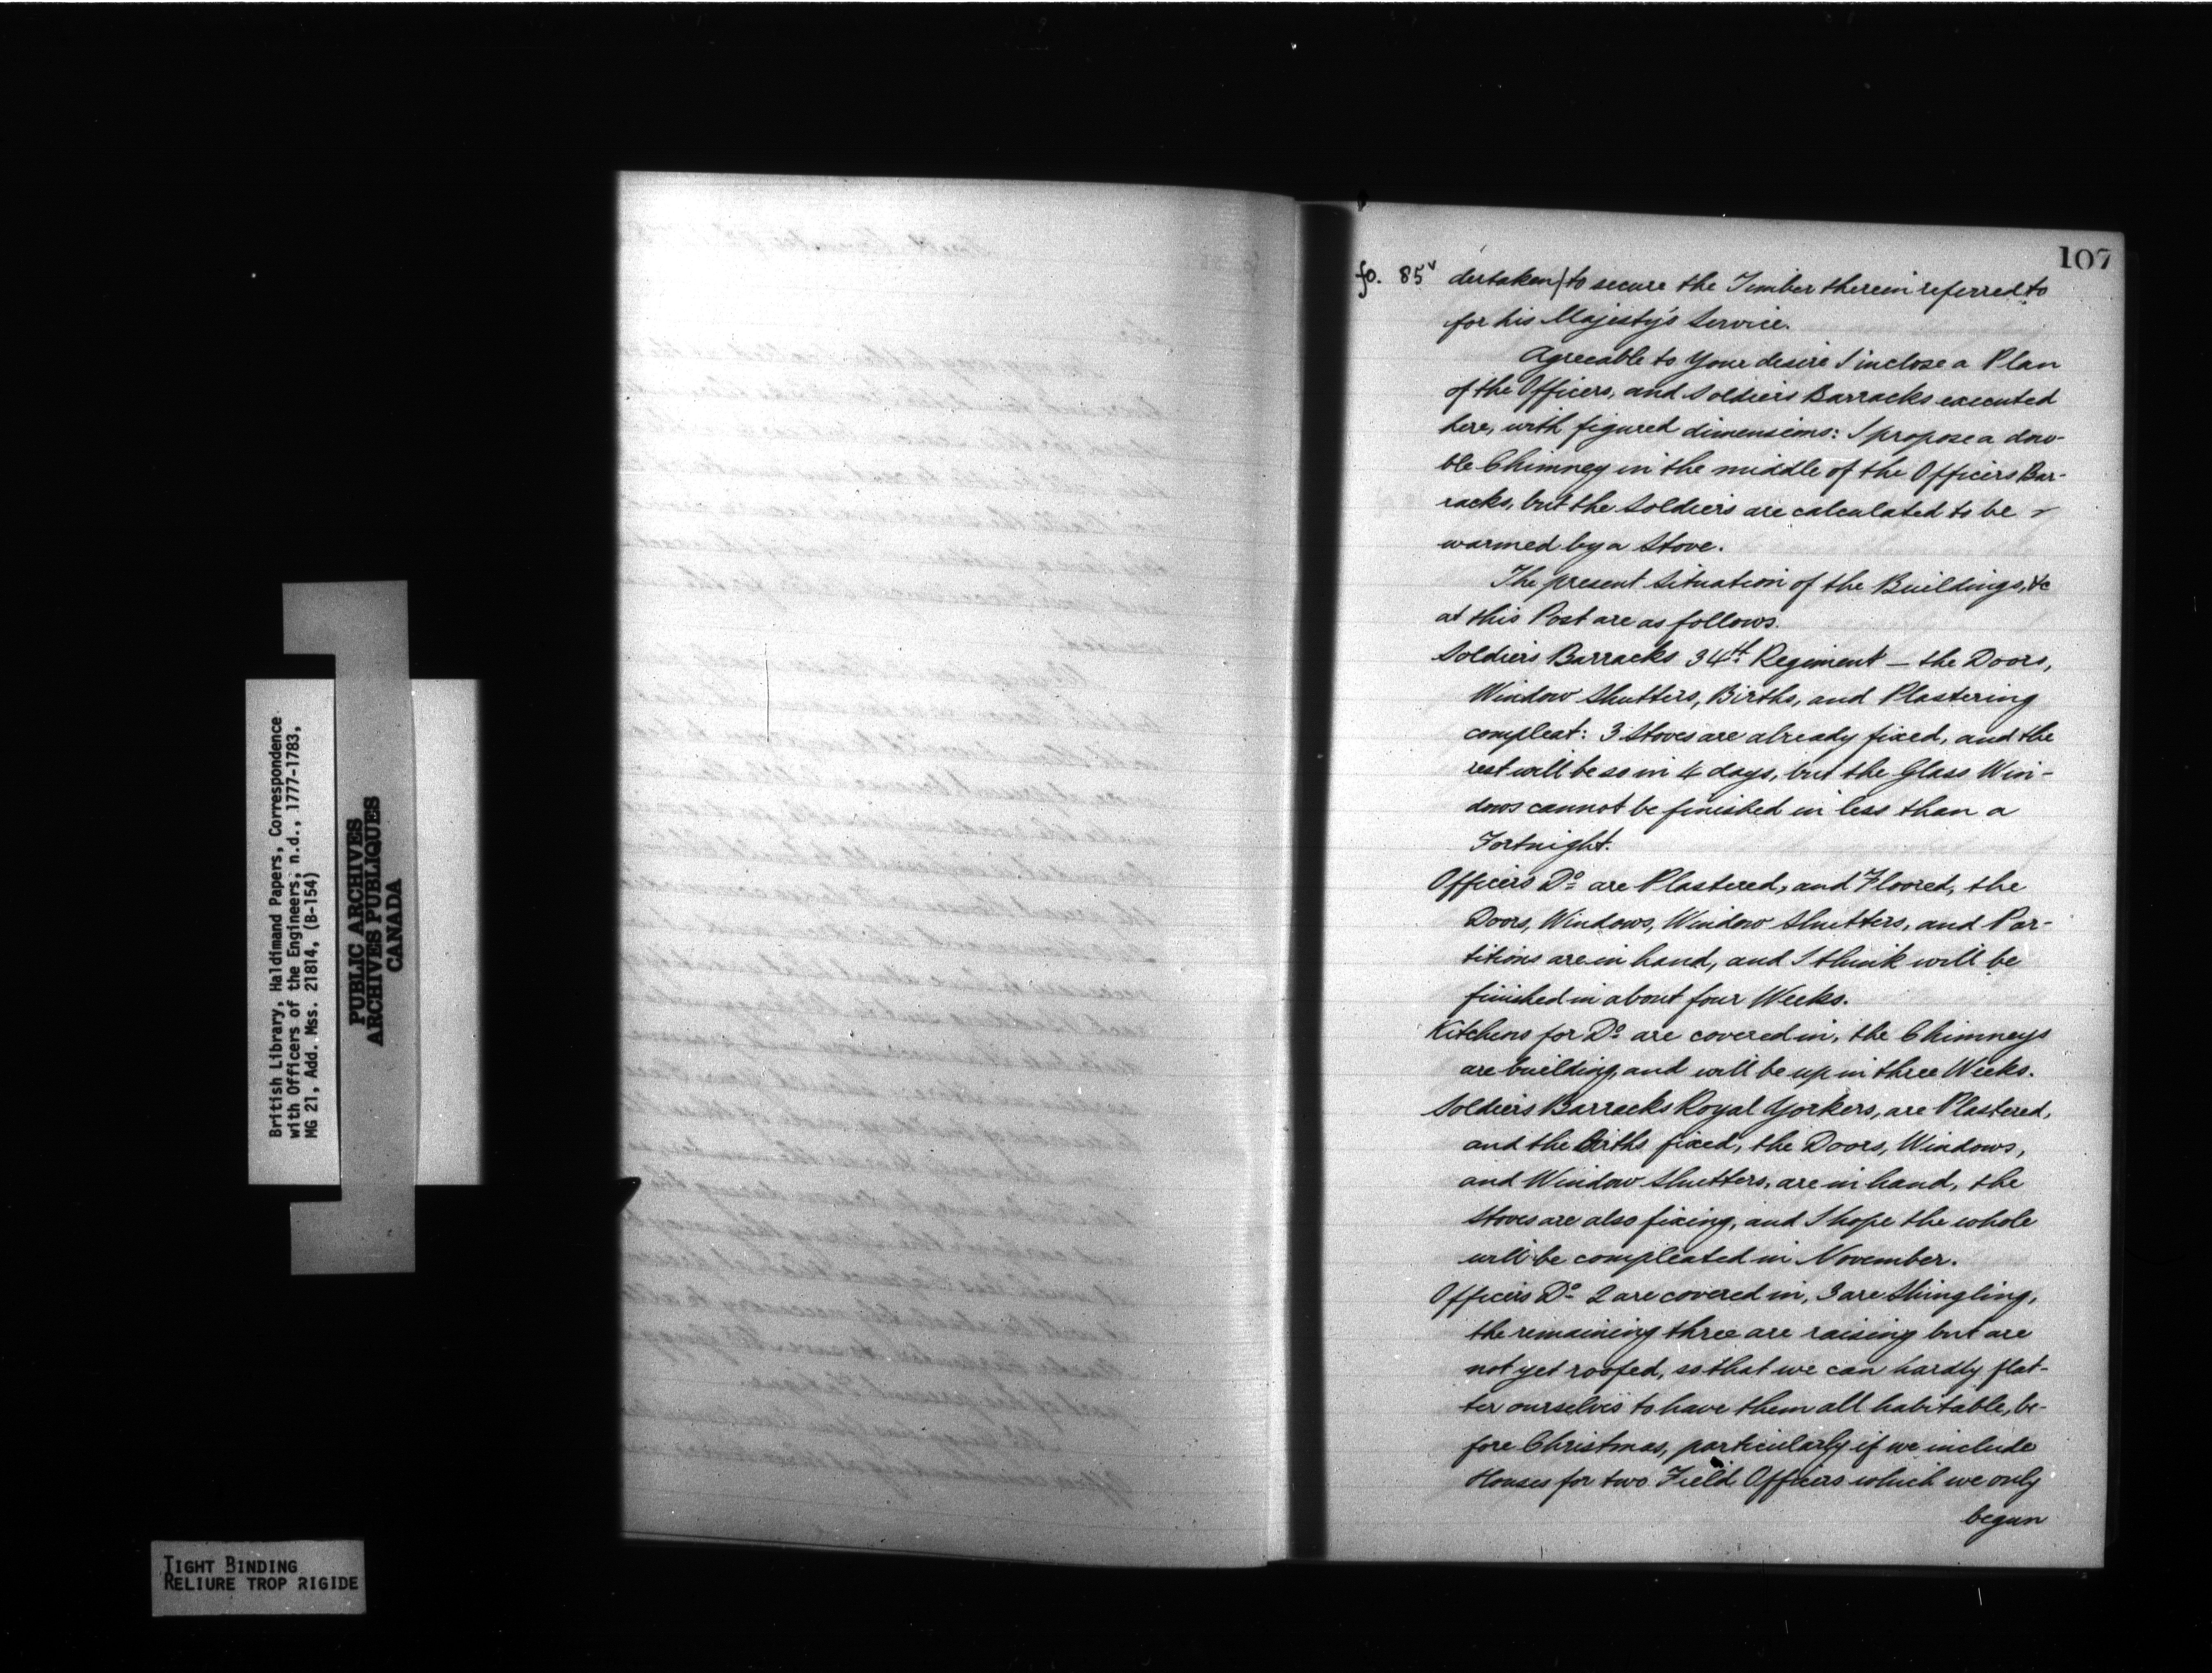 107
fo. 85v dertaken/to secure the Timber therein referred to
for his Majesty's Service.
Agreeable to Your desire I inclose a Plan
of the Officers, and Soldiers Barracks executed
here, with figured dimensions: I propose a dou-
ble Chimney in the middle of the Officers Bar-
racks, but the Soldiers are calculated to be
warmed by a Stove.
The present Situation of the Buildings, &c
at this Post are as follows.
Soldiers Barracks 34th Regiment — the Doors,
Window Shutters, Births, and Plastering
compleat: 3 Stoves are already fixed, and the
rest will be so in 4 days, but the Glass Win-
dows cannot be finished in less than a
Fortnight.
Officers Do are Plastered, and Floored, the
Doors, Windows, Window Shutters, and Par-
titions are in hand, and I think will be
finished in about four Weeks.
Kitchens for Do are covered in, the Chimneys
are building, and will be up in three Weeks.
Soldiers Barracks Royal Yorkers, are Plastered,
and the Births fixed, the Doors, Windows,
and Window Shutters, are in hand, the
Stoves are also fixing, and I hope the whole
will be compleated in November.
Officers Do 2 are covered in, 3 are Shingling,
the remaining three are raising but are
not yet roofed, so that we can hardly flat-
ter ourselves to have them all habitable, be-
fore Christmas, particularly if we include
Houses for two Field Officers which we only
begun
British Library, Haldimand Papers, Correspondence
with Officers of the Engineers, n.d., 1777-1783,
MG 21, Add. Mss. 21814, (B-154)
PUBLIC ARCHIVES
ARCHIVES PUBLIQUES
CANADA
TIGHT BINDING
RELIURE TROP RIGIDE